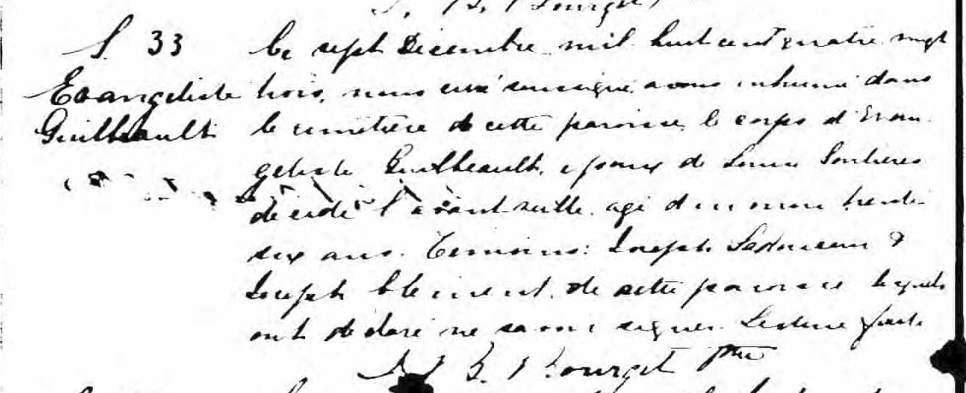 J. B. Bourget
S. 33
Evangeliste
Guilbeault
Le sept Decembre mil huit cent quatre vingt
trois, nous curé soussigné avons inhumé dans
le cimetière de cette paroisse, le corps d'Evan-
géliste Guilbeault, epoux de
décédé l'avant veille, agé d'environ trente
six ans. Temoins: Joseph &
Joseph Clement, de cette paroisse lesquels
ont declaré ne savoir signer. Lecture faite
J. B. Bourget Ptre